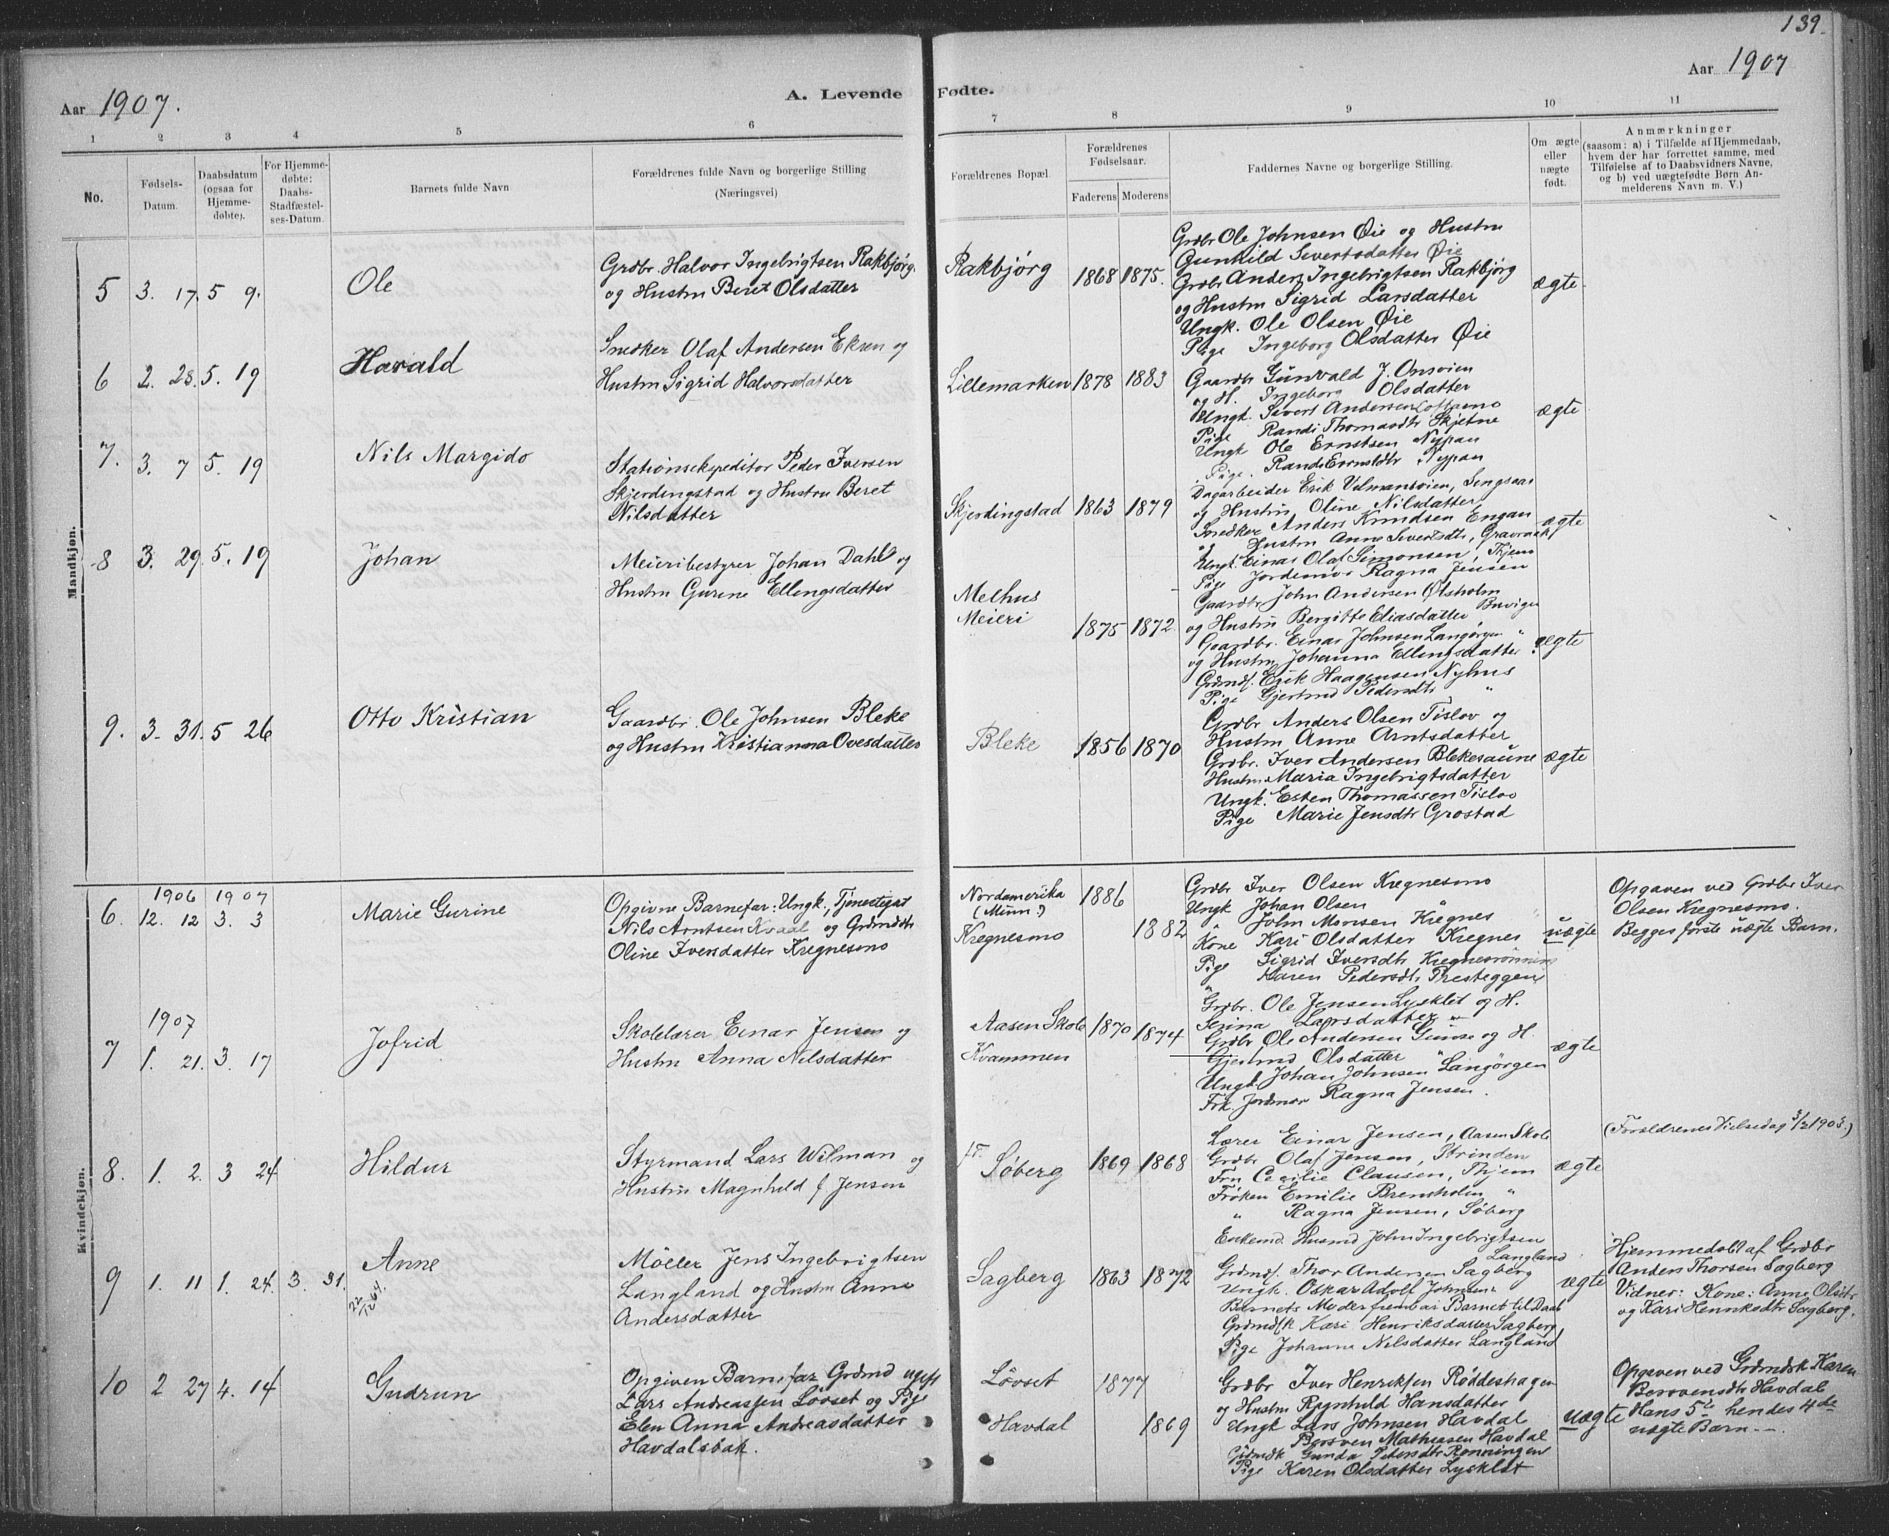 139.
Aar 1907.
A. Levende Fødte.
Aar 1907
1 2 3 4 5 6 7 8 9 10 11
No.
Fødsels-Datum.
Daabsdatum (ogsaa for Hjemmedøbte).
For Hjemmedøbte: Daabs-Stadfæstelses-Datum.
Barnets fulde Navn
Forældrenes fulde Navn og borgerlige Stilling
(Næringsvei)
Forældrenes Bopæl.
Forældrenes Fødselsaar.
Faderens Moderens
Faddernes Navne og borgerlige Stilling.
Om ægte eller uægte født.
Anmærkninger
(saasom: a) i Tilfælde af Hjemmedaab,
hvem der har forrettet samme, med
Tilføielse af to Daabsvidners Navne,
og b) ved uægtefødte Børn Anmelderens Navn m. V.)
Mandkjøn.
5 3. 17. 5 9. Ole
Grdbr. Halvor Ingebrigtsen Rakbjørg.
og Hustru Beret Olsdatter
Rakbjørg 1868 1875.
Grdbr Ole Johnsen Øie og Hustru
Gunhild Sivertsdatter Øie
Grdbr Anders Ingebrigtsen Rakbjørg
og Hustru Sigrid Larsdatter
Ungk. Ole Olsen Øie
Pige Ingeborg Olsdatter Øie
ægte
6 2. 28. 5. 19 Harald
Snedker Olaf Andersen Eksen og
Hustru Sigrid Halvorsdatter
Lillemarken 1878 1883
Gaardbr Gunvald J. Onsøien
og H. Ingeborg Olsdatter
Ungk. Sivert Andersen Loftamo
Pige Randi Thomasdtr Skjetne
Ungk Ole Ernstsen Nypan
Pige. Randi Ernstdtr Nypan
ægte
7. 3. 7 5. 19 Nils Margido
Stationsekspeditør Peder Iversen
Skjerdingstad og Hustru Beret
Nilsdatter
Skjerdingstad 1863 1879
Dagarbeider Erik Valmansøien, Singsaas
og Hustru Oline Nilsdatter
Snedker Anders Knudsen Engan
og Hustru Anne Sivertsdtr, Gravraak
Ungk. Einar Olaf Simonsen, Thjem
Pige Jordemor Ragna Jensen
ægte
8 3. 29. 5. 19 Johan
Meieribestyrer Johan Dahl og
Hustru Gurine Ellingsdatter
Melhus
Meieri 1875 1872
Gaardbr John Andersen Ølsholm
og Hustru Bergitte Eliasdatter, Buvigen
Gaardbr. Einar Johnsen Langørgen "
og Hustru Johanna Ellingsdatter "
Grdmd. Erik Haagensen Nyhus
Pige Gjertrud Pedersdtr "
ægte
9. 3. 31. 5 26 Otto Kristian
Gaardbr. Ole Johnsen Bleke
og Hustru Kristianna Ovesdatter
Bleke 1856 1870
Grdbr Anders Olsen Tislov og
Hustru Anne Arntsdatter
Grdbr. Iver Andersen Blekesaune
Hustru Maria Ingebrigtsdatter
Ungk. Esten Thomassen Tislov
Pige Marie Jensdtr Grostad
ægte
Kvindekjøn.
1906 1907
6. 12. 12 3. 3 Marie Gurine
Opgivne Barnefar: Ungk., Tjenestegut
Nils Arntsen Kvaal og Grdmdtr
Oline Iversdatter Kregnesmo
Nordamerika
(Minn.) 1886
Kregnesmo 1882
Grdbr Iver Olsen Kregnesmo
Ungk Johan Olsen "
" John Monsen Kregnes
Kone Kari Olsdatter Kregnes
Pige Sigrid Iversdtr Kregnesrønning
" Karen Pedersdtr Presteggen
uægte
Opgaven ved Grdbr Iver
Olsen Kregnesmo.
Begges første uægte Barn.
1907
7 1. 21. 3. 17 Jofrid
Skolelærer Einar Jensen og
Hustru Anna Nilsdatter
Aasen Skole
Kvammen 1870 1874
Grdbr. Ole Jensen Lysklet og H.
Serina Larsdatter "
Grdbr Ole Andersen Gimse og H.
Gjertrud Olsdatter "
Ungk. Johan Johnsen Langørgen
Frk. Jordmor Ragna Jensen.
ægte
8. 1. 2. 3 24 Hildur
Styrmand Lars Wilman og
Hustru Magnhild f. Jensen
Søberg 1869 1868
Lærer Einar Jensen, Aasen Skole
Grdbr Olaf Jensen, Strinden
Fru Cecilie Clausen, Thjem
Frøken Emilie Brensholm "
" Ragna Jensen, Søberg
ægte
(Forældrenes Vielsedag 3/2 1903.)
9 1. 11 1. 24. 3. 31. Anne
Møller Jens Ingebrigtsen
Langland og Hustru Anne
Andersdatter
Sagberg 1863 1872
Enkemd. Husmd John Ingebrigtsen
Langland
Grdmd. Thor Andersen Sagberg
Ungk. Oskar Adolf Johnsen
Barnets Moder frembar Barnet til Daab
Grdmdsk Kari Henriksdatter Sagberg,
Pige Johanne Nilsdatter Langland
ægte
Hjemmedøbt af Grdbr
Anders Thorsen Sagberg
Vidner: Kone: Anne Olsdtr
og Kari Henriksdtr Sagberg.
10 2 27 4. 14 Gudrun
Opgiven Barnefar Grdmd ugift
Lars Andreassen Løvset og Pige
Elen Anna Andreasdatter
Havdalsbak.
Løvset 1877
Havdal 1869
Grdbr Iver Henriksen Røddeshagen
og Hustru Ragnhild Hansdatter
Ungk Lars Johnsen Havdal
" Berosven Mathiesen Havdal
Grdmdsk Gunda Pedersdtr Rønningen
Pige Karen Olsdatter Lysklet
uægte
Opgaven ved Grdmdsk Karen
Havdal
Hans 5te hendes 4de
uægte Barn.